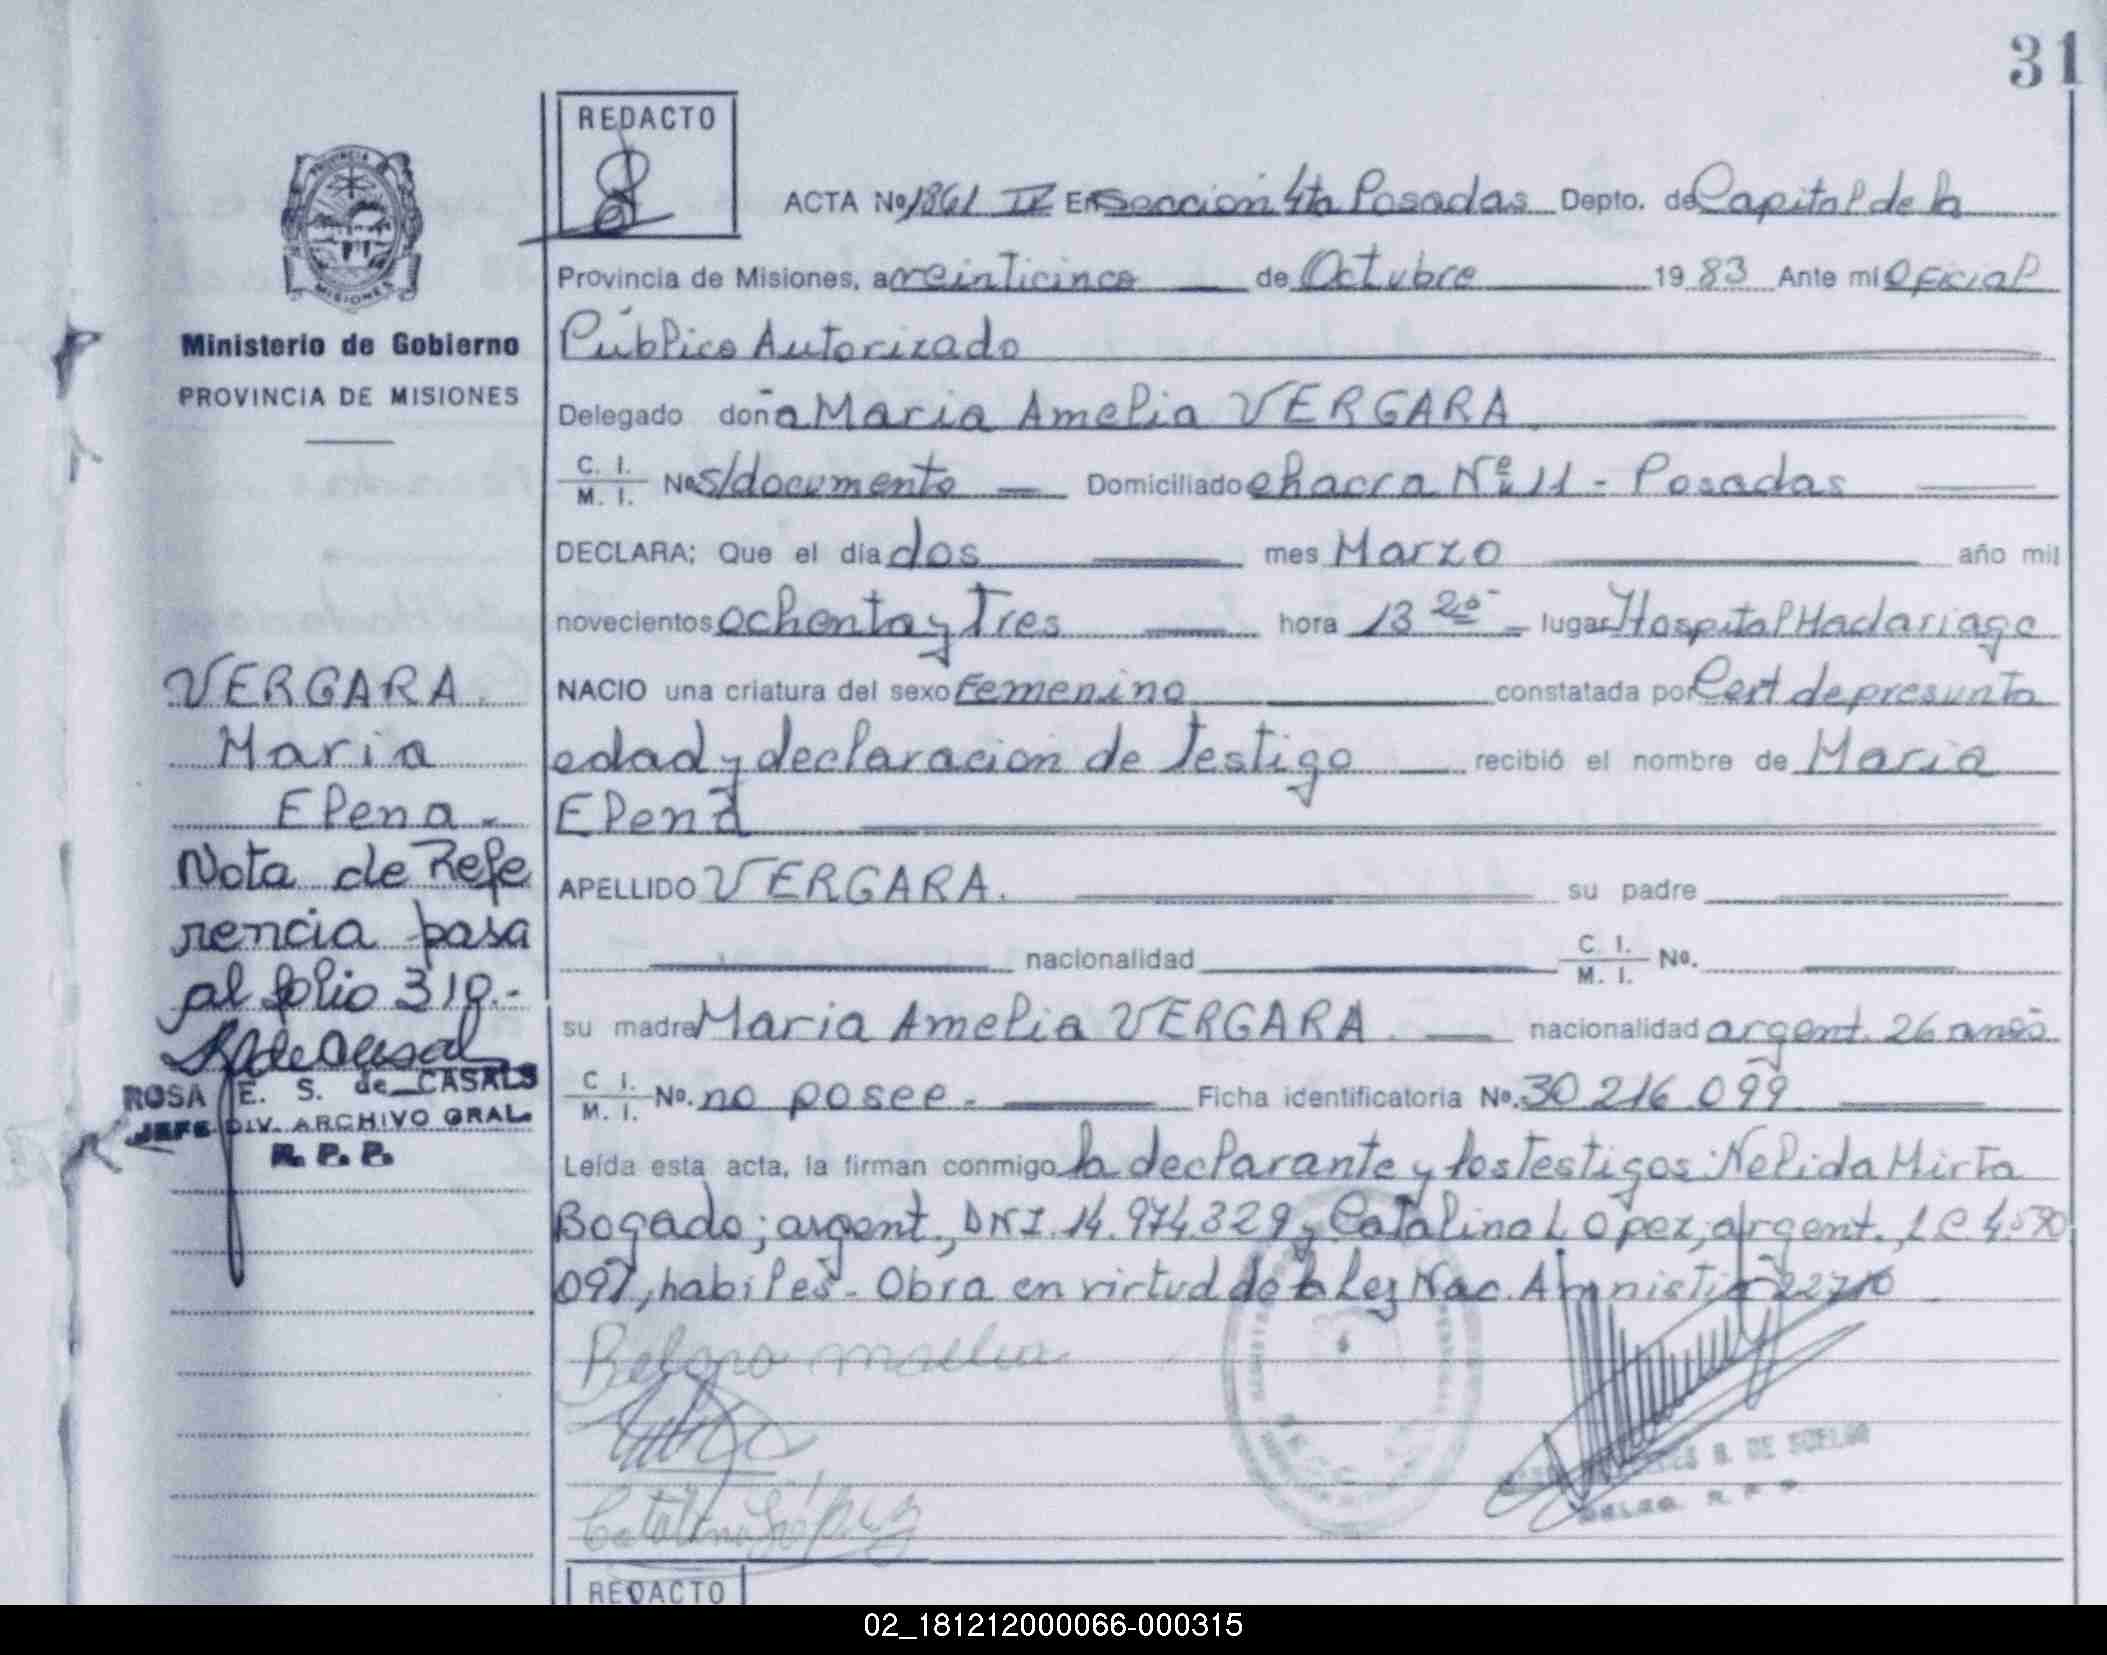 31
REDACTO
ACTA No 1861 IV En Seccion 4ta Posadas Depto. de Capital de la
Provincia de Misiones, a veinticinco de Octubre 1983 Ante mi Oficial
Público Autorizado
Delegado doña Maria Amelia VERGARA
C. I. / M. I. No s/documento Domiciliado chacra Nº 11 - Posadas
DECLARA; Que el día dos mes Marzo año mil
novecientos ochenta y Tres hora 13 20 lugar Hospital Madariaga
NACIO una criatura del sexo Femenino constatada por Cert de presunta
edad y declaracion de Testigo recibió el nombre de Maria
Elena
APELLIDO VERGARA. su padre
nacionalidad C. I. / M. I. No.
su madre Maria Amelia VERGARA nacionalidad argent. 26 años
C I. / M. I. No. no posee. Ficha identificatoria No. 30 216 099
Leída esta acta, la firman conmigo la declarante y los Testigos: Nelida Mirta
Bogado; argent., DNI. 14.974.329 y Catalina Lopez, argent., L C 4.530
097, habiles - Obra en virtud de la Ley Nac. Amnistia 22710
Catalina López
B. DE SOELGO
DELEG. R. P. P.
PROVINCIA DE MISIONES
Ministerio de Gobierno
PROVINCIA DE MISIONES
VERGARA.
Maria
Elena.
Nota de Refe
rencia pasa
al folio 319.-
ROSA E. S. de CASALS
JEFE DIV. ARCHIVO GRAL.
R. P. P.
REDACTO
02_181212000066-000315